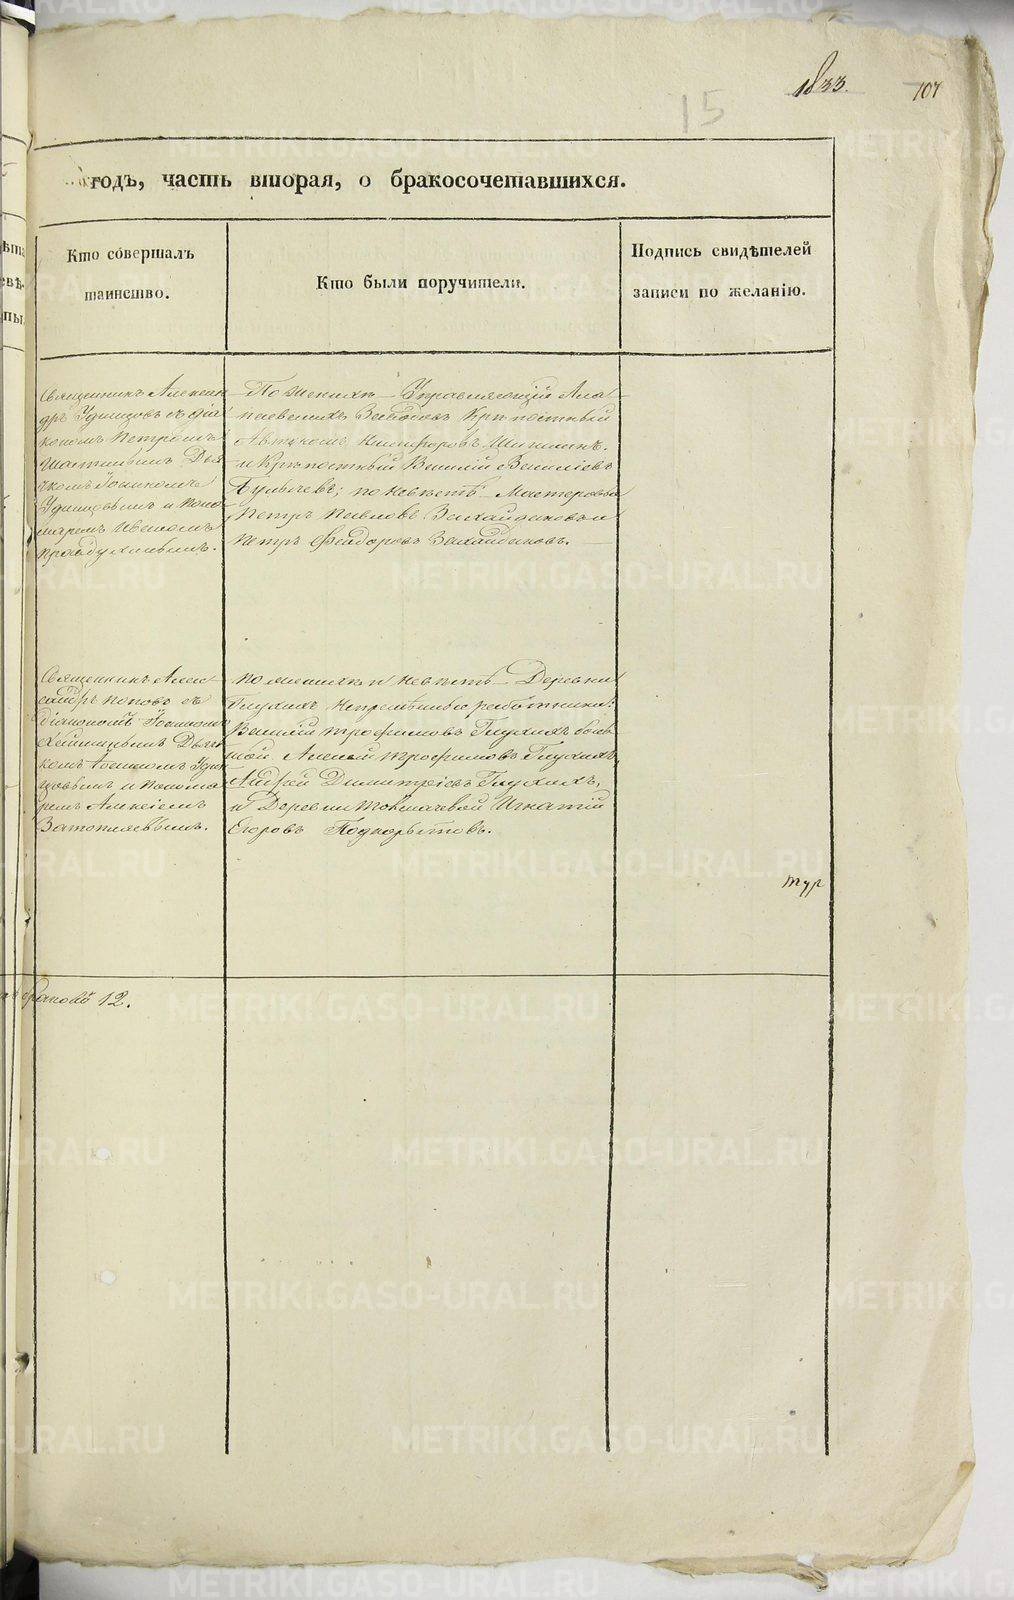 1833.
107
15
годъ, часть вторая, о бракосочетавшихся.
Кто совершалъ
таинство.
Кто были поручители.
Подпись свидѣтелей
записи по желанію.
Священникъ Алексан
дръ Удинцовъ съ діа
кономъ Петромъ
Дья
чкомъ Іоанномъ
Удинцовымъ и поно
маремъ Иваномъ
По женихѣ – Управляющій Ала
паевскихъ Заводовъ Крѣпостный
Автономъ Никифоровъ Шишкинъ
и Крѣпостный Василій Василіевъ
Булычевъ; по невѣстѣ – Мастеровые
Петръ Павловъ и
Петръ Феодоровъ
Священникъ Алек
сандръ Поповъ съ
діакономъ Іоанномъ
Дьяч
комъ Іоанномъ Удин
цовымъ и понома
ремъ Алексіемъ
Затопляевымъ.
По женихѣ и невѣстѣ – Деревни
Глухихъ Непремѣнные работники:
Василій Трофимовъ Глухихъ
Алексій Трофимовъ Глухихъ
Андрей Димитріевъ Глухихъ,
и Деревни Толмачевой Игнатій
Егоровъ Подкорытовъ.
тур
браковъ 12.
METRIKI.GASO-URAL.RU